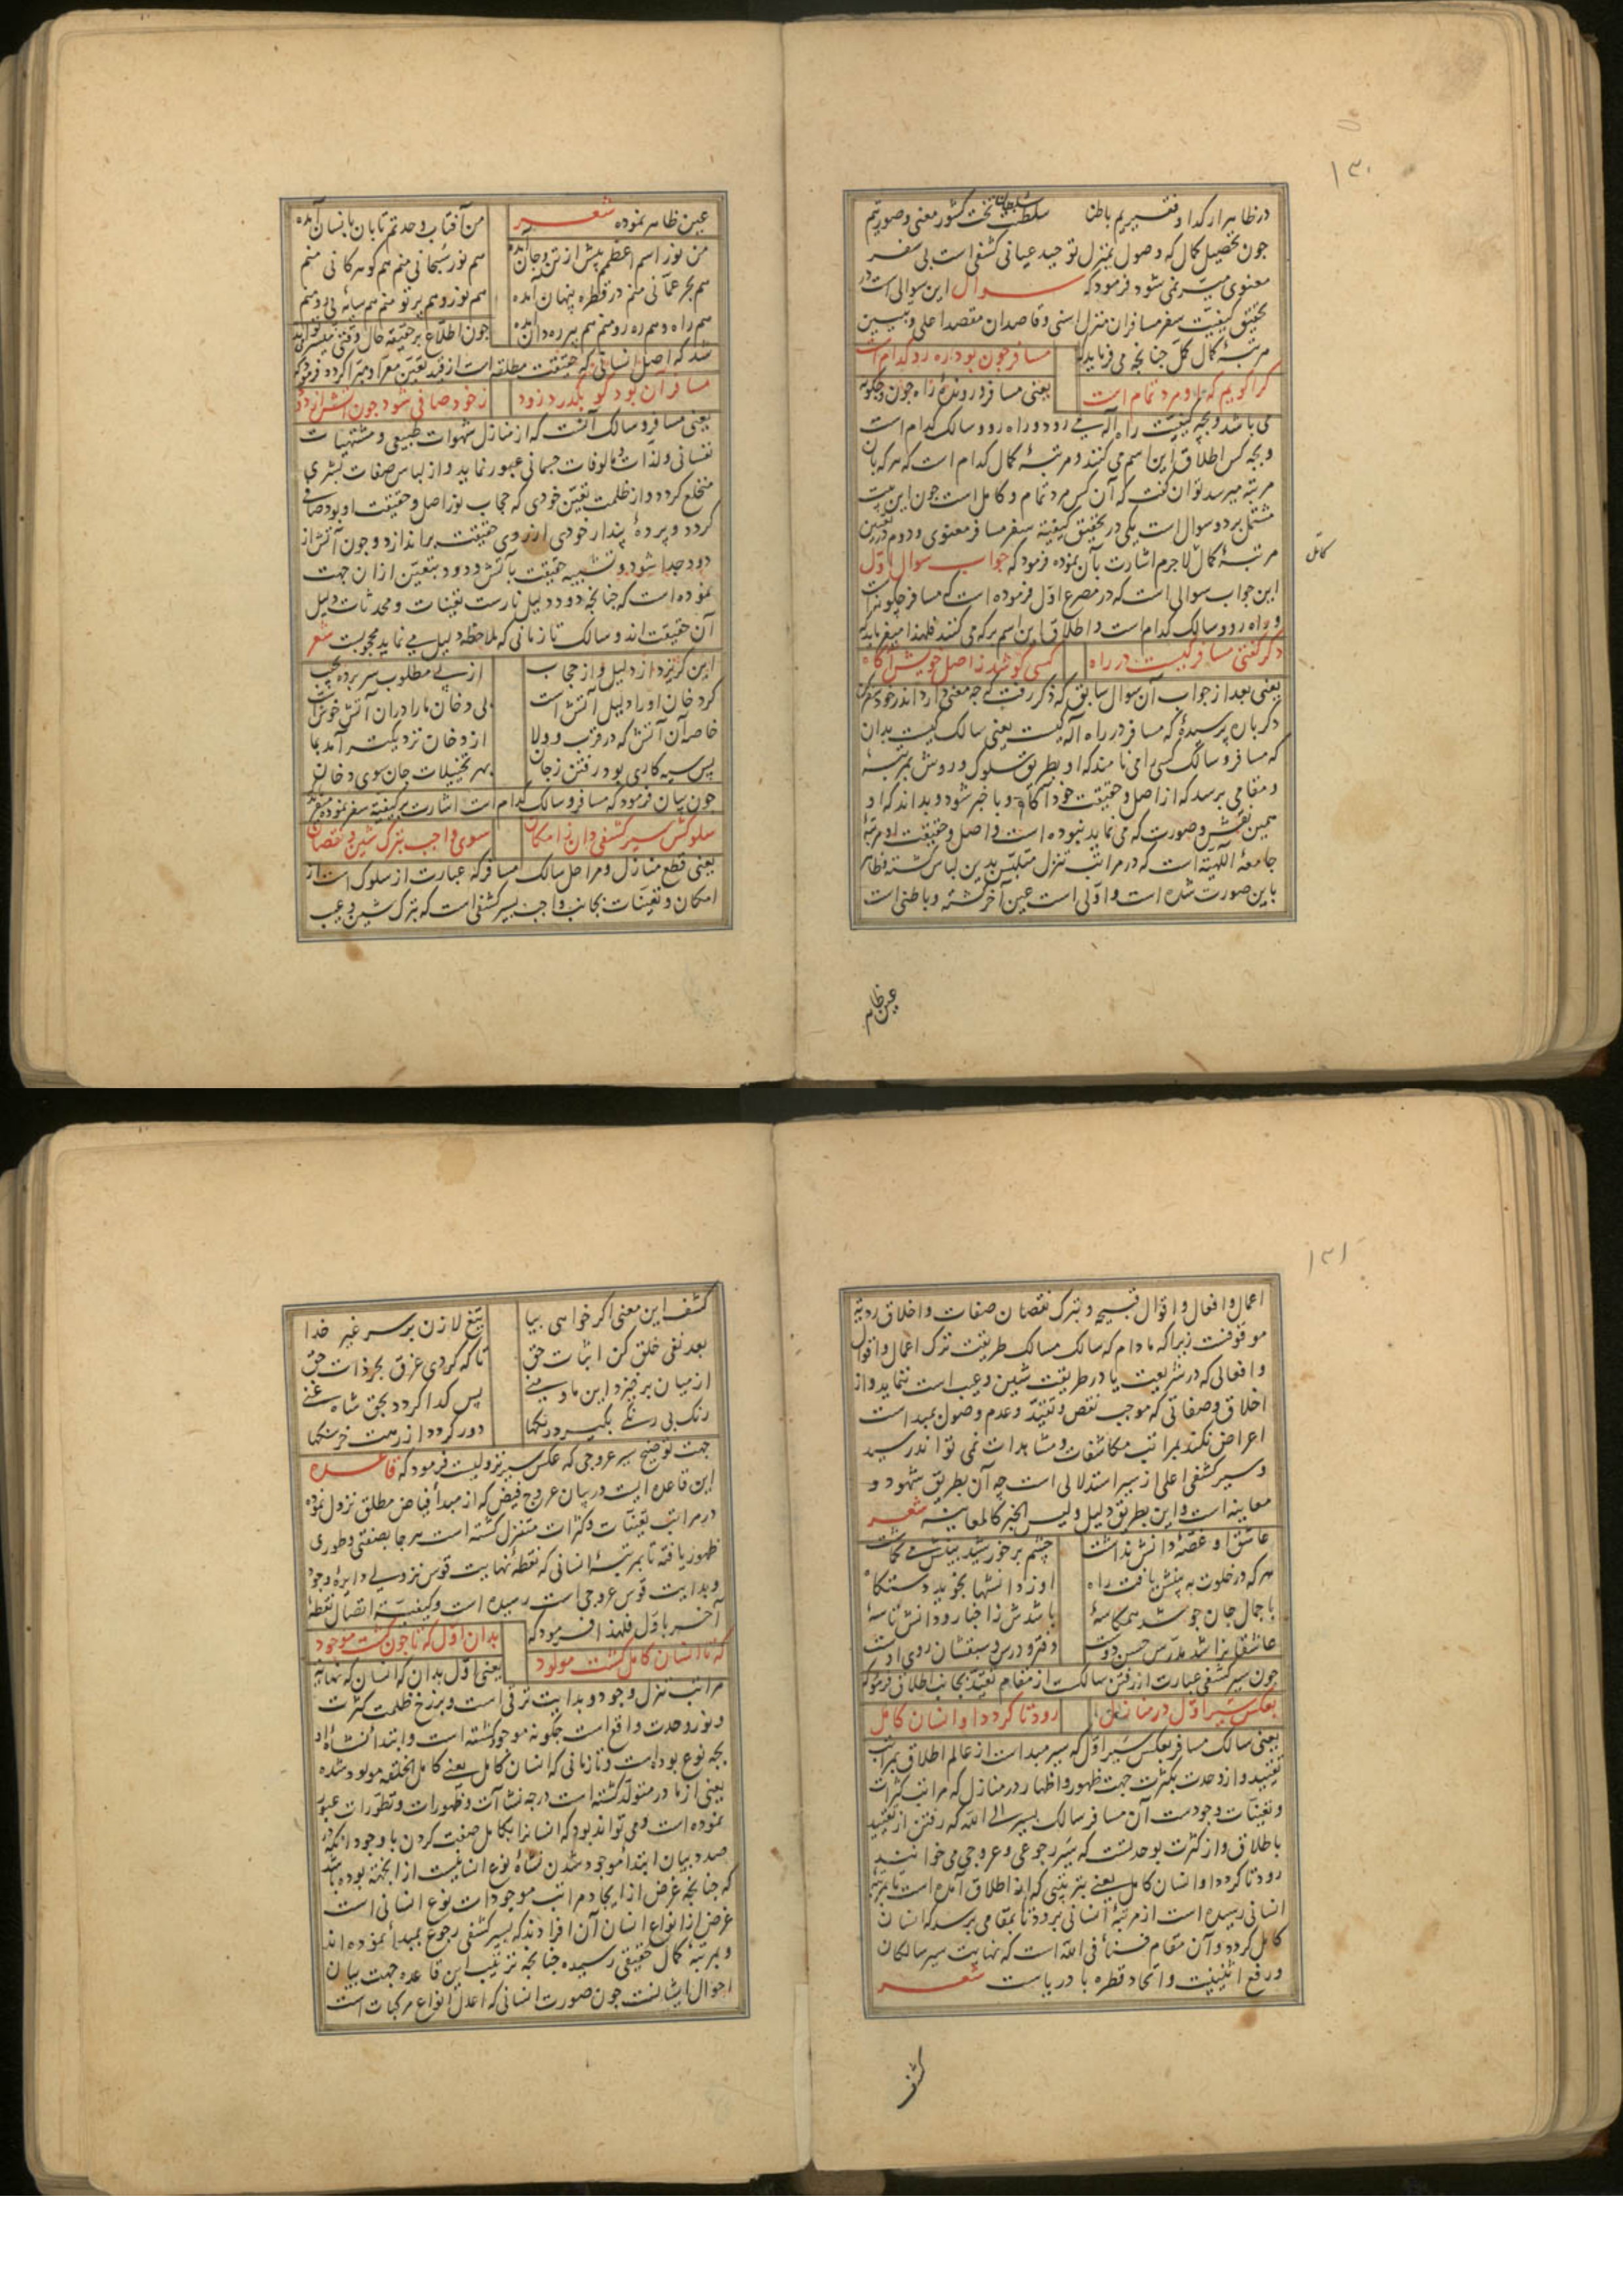 ۱۳۰
در ظاهر ار گدا و فقیریم باطنا سلطان تخت کشور معنی و صورتیم
چون تحصیل کمال که وصول بمنزل توحید عیانی کشفی است بی سفر
معنوی میسر نمی شود فرمود که سوال این سوالی است در
تحقیق کیفیت سفر مسافران منزل اسنی و قاصدان مقصد اعلی و تبیین
مرتبهٔ کمال کمّل چنانچه می فرماید که
مسافر چون بود ره رو کدام است
کرا گویم که او مرد تمام است
یعنی مسافر و روندهٔ راه چون و چگونه
می باشد و بچه کیفیت راه اله می رود و راه رو و سالک کدام است
و بچه کس اطلاق این اسم می کنند و مرتبهٔ کمال کدام است که هر که بآن
مرتبه میرسد توان گفت که آن کس مرد تمام و کامل است چون این بیت
مشتمل بر دو سوال است یکی در تحقیق کیفیة سفر مسافر معنوی و دوم در تعیین
مرتبهٔ کمال لاجرم اشارت بآن نموده فرمود که جواب سوال اوّل
کامل
این جواب سوالی است که در مصرع اوّل فرموده است که مسافر چگونه است
و راه رو و سالک کدام است و اطلاق این اسم بر که می کنند فلهذا میفرماید که
دگر گفتی مسافر کیست در راه کسی کو شد ز اصل خویش آگاه
یعنی بعد از جواب آن سوال سابق که ذکر رفت که چه معنی دارد اندر خود سفر کن
دگر بار پرسیدهٔ که مسافر در راه اله کیست یعنی سالک کیست بدان
که مسافر و سالک کسی را می نامند که او بطریق سلوک و روش بمرتبهٔ
و مقامی برسد که از اصل و حقیقت خود آگاه و با خبر شود و بداند که او
همین نقش و صورت که می نماید نبوده است و اصل و حقیقت او مرتبهٔ
جامعهٔ الٓهیّه است که در مراتب تنزل متلبّس بدین لباس گشته و ظاهر
باین صورت شده است و اوّلی است عین آخر گشته و باطنی است
عین ظاهر
عین ظاهر نموده شعر
من آفتاب وحدتم تابان بانسان آمده
من نور اسم اعظمم پیش از تن و جان آمده
هم نور سبحانی منم هم گوهر کانی منم
هم بحر عمّانی منم در قطره پنهان آمده
هم نور و هم پرتو منم هم سایهٔ بی رو منم
هم راه و هم ره رو منم هم پیر ره دان آمده
چون اطلاع بر حقیقه حال وقتی میسر تواند
شد که اصل انسانی که حقیقت مطلقه است از قید تعیّن معرّا و مبرّا گردد فرمود که
مسافر آن بود کو بگذرد زود ز خود صافی شود چون آتش از دود
یعنی مسافر و سالک آنست که از منازل شهوات طبیعی و مشتهیات
نفسانی و لذات و مالوفات جسمانی عبور نماید و از لباس صفات بشری
منخلع گردد و از ظلمت تعیّن خودی که حجاب نور اصل و حقیقت او بود صافی
گردد و پردهٔ پندار خودی از روی حقیقت براندازد و چون آتش از
دود جدا شود و تشبیه حقیقت بآتش و دود بتعیّن از ان جهت
نموده است که چنانچه دود دلیل نارست تعیّنات و محدثات دلیل
آن حقیقت اند و سالک تا زمانی که ملاحظه دلیل می نماید محجوبست شعر
این گریزد از دلیل و از حجاب از پی مطلوب سر برده بجیب
گر دخان او را دلیل آتش است بی دخان ما را در آن آتش خوش است
خاصه آن آتش که در قرب و ولا از دخان نزدیکتر آمد بما
پس سیه کاری بود رفتن ز جان بهر تخییلات جان سوی دخان
چون بیان فرمود که مسافر و سالک کدام است اشارت بر کیفیّة سفر نموده میفرماید
سلوکش سیر کشفی دان ز امکان سوی واجب بترک شین و نقصان
یعنی قطع منازل و مراحل سالک مسافر که عبارت از سلوک است از
امکان و تعیّنات بجانب واجب بسیر کشفی است که بترک شین و عیب
۱۳۱
اعمال و افعال و اقوال قبیحه و بترک نقصان صفات و اخلاق ردیه
موقوفست زیرا که مادام که سالک مسالک طریقت ترک اعمال و اقوال
و افعالی که در شریعت یا در طریقت شین و عیب است ننماید و از
اخلاق و صفاتی که موجب نقص و تقیّد و عدم وصول بمبدا است
اعراض نکند بمراتب مکاشفات و مشاهدات نمی تواند رسید
و سیر کشفی اعلی از سیر استدلالی است چه آن بطریق شهود و
معاینه است و این بطریق دلیل و لیس الخبر کالمعاینه شعر
عاشق او غصّهٔ دانش نداشت چشم بر خورشید بینش می گماشت
هر که در خلوت به بینش یافت راه او ز دانشها نجوید دستگاه
با جمال جان چو شد همکاسهٔ باشدش ز اخبار و دانش تاسهٔ
عاشقانرا شد مدرّس حسن دوست دفتر و درس و سبقشان روی اوست
چون سیر کشفی عبارت از رفتن سالک است از مقام تقیّد بجانب اطلاق فرمود که
بعکس سیر اوّل در منازل رود تا گردد او انسان کامل
یعنی سالک مسافر بعکس سیر اوّل که سیر مبداست از عالم اطلاق بمراتب
تقیید و از وحدت بکثرت جهت ظهور و اظهار در منازل که مراتب کثرات
و تعیّنات وجودست آن مسافر سالک بسیر الی الله که رفتن از تقیید
باطلاق و از کثرت بوحدتست که سیر رجوعی و عروجی می خوانند
رود تا گردد او انسان کامل یعنی بترتیبی که از اطلاق آمده است تا بمرتبهٔ
انسانی رسیده است از مرتبهٔ انسانی برود تا بمقامی برسد که انسان
کامل گردد و آن مقام فناء فی الله است که نهایت سیر سالکان
و رفع اثنینیت و اتحاد قطره با دریاست شعر
کشف
کشف این معنی اگر خواهی بیا تیغ لا زن بر سر غیر خدا
بعد نفی خلق کن اثبات حق تا که گردی غرق بحر ذات حق
از میان برخیزد این ما و منی پس گدا گردد بحق شاه غنی
رنک بی رنکی بگیرد رنکها دور گردد از رهت خرسنکها
جهت توضیح سیر عروجی که عکس سیر نزولیست فرمود که قاعده
این قاعده ایست در بیان عروج فیض که از مبدأ فیاض مطلق نزول نموده
در مراتب تعیّنات و کثرات متنزل گشته است هر جا بصفتی و طوری
ظهور یافته تا بمرتبهٔ انسانی که نقطهٔ نهایت قوس نزولی دایرهٔ وجود
و بدایت قوس عروجی است رسیده است و کیفیّة اتصال نقطهٔ
آخر باوّل فلهذا فرمود که
بدان اوّل که تا چون گشت موجود
که تا انسان کامل گشت مولود
یعنی اوّل بدان که انسان که نهایة
مراتب تنزل وجود و بدایت ترقی است و برزخ ظلمت کثرت
و نور وحدت واقع است چگونه موجود گشته است و ابتداء نشاهٔ او
بچه نوع بوده است و تا زمانی که انسان کامل یعنی کامل الخلقه مولود شده
یعنی از مادر متولّد گشته است در چه نشاآت و ظهورات و تطوّرات عبور
نموده است و می تواند بود که انسانرا بکامل صفت کردن با وجود آنکه در
صدد بیان ابتداء موجود شدن نشاهٔ نوع انسانیست از انجهة بوده باشد
که چنانچه غرض از ایجاد مراتب موجودات نوع انسانی است
غرض از انواع انسان آن افرادند که بسیر کشفی رجوع بمبدأ نموده اند
و بمرتبهٔ کمال حقیقی رسیده چنانچه ترتیب این قاعده جهت بیان
احوال ایشانست چون صورت انسانی که اعدل انواع مرکبات است